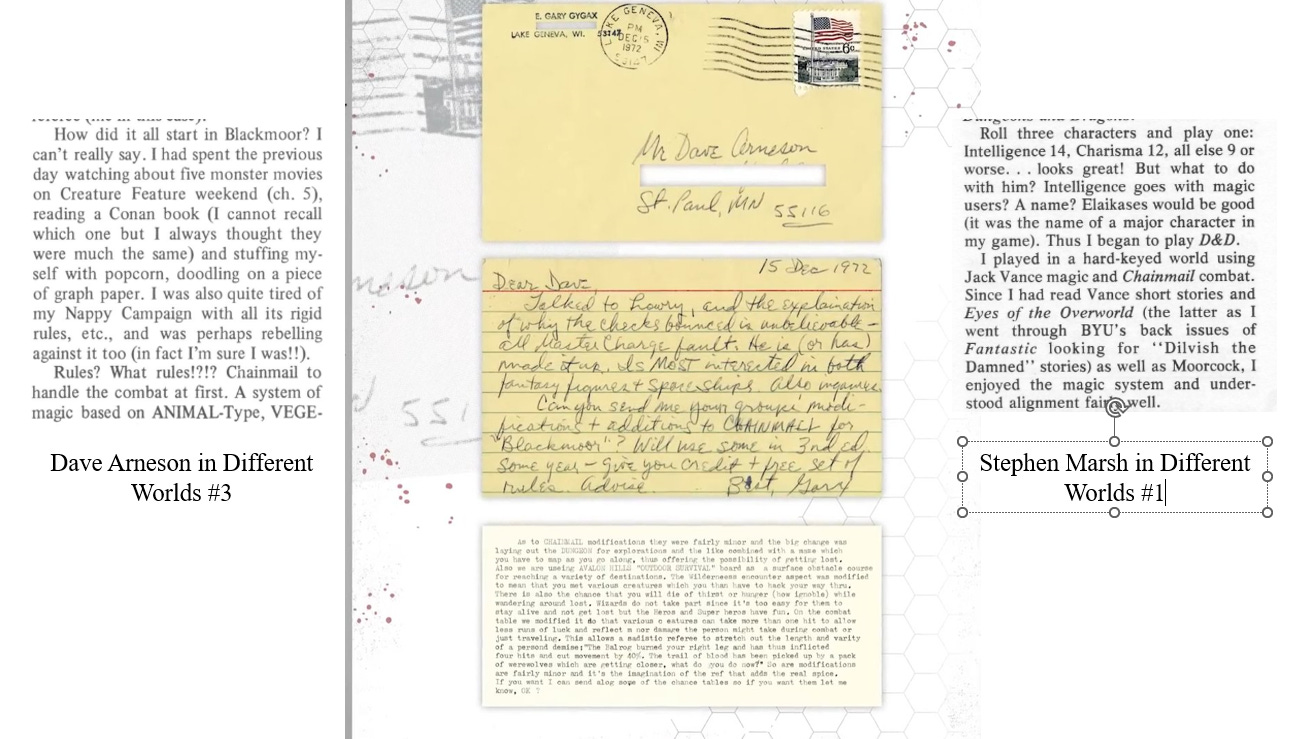 How did it all start in Blackmoor? I
can't really say. I had spent the previous
day watching about five monster movies
on Creature Feature weekend (ch. 5),
reading a Conan book (I cannot recall
which one but I always thought they
were much the same) and stuffing my-
self with popcorn, doodling on a piece
of graph paper. I was also quite tired of
my Nappy Campaign with all its rigid
rules, etc., and was perhaps rebelling
against it too (in fact I'm sure I was!!).
Rules? What rules!?!? Chainmail to
handle the combat at first. A system of
magic based on ANIMAL-Type, VEGE-
Dave Arneson in Different
Worlds #3
E. GARY GYGAX
LAKE GENEVA, WI. 53147
LAKE GENEVA, WI
PM
DEC 15
1972
53147
UNITED STATES 6c
Mr Dave Arneson
St. Paul, MN 55116
15 Dec 1972
Dear Dave,
Talked to Lowry, and the explaination
of why the checks bounced is unbelievable –
all Master Charge fault. He is (or has)
made it up. Is Most interested in both
fantasy figures + Space ships. Also in games
Can you send me your groups' modi-
fications + additions to CHAINMAIL for
"Blackmoor"? Will use some in 3rd ed.
some year – give you credit + free set of
rules. Advise. Best, Gary
As to CHAINMAIL modifications they were fairly minor and the big change was
laying out the DUNGEON for explorations and the like combined with a maze which
you have to map as you go along, thus offering the possibility of getting lost.
Also we are useing AVALON HILLS "OUTDOOR SURVIVAL" board as a surface obstacle course
for reaching a variety of destinations. The Wilderness encounter aspect was modified
to mean that you met various creatures which you than have to hack your way thru.
There is also the chance that you will die of thirst or hunger (how ignoble) while
wandering around lost. Wizards do not take part since it's too easy for them to
stay alive and not get lost but the Heros and Super heros have fun. On the combat
table we modified it do that various c eatures can take more than one hit to allow
less runs of luck and reflect m nor damage the person might take during combat or
just traveling. This allows a sadistic referee to stretch out the length and varity
of a persond demise;"The Balrog burned your right leg and has thus inflicted
four hits and cut movement by 40%. The trail of blood has been picked up by a pack
of werewolves which are getting closer, what do you do now?" So are modifications
are fairly minor and it's the imagination of the ref that adds the real spice.
If you want I can send alog some of the chance tables so if you want them let me
know, OK ?
Dungeons and Dragons.
Roll three characters and play one:
Intelligence 14, Charisma 12, all else 9 or
worse. . . looks great! But what to do
with him? Intelligence goes with magic
users? A name? Elaikases would be good
(it was the name of a major character in
my game). Thus I began to play D&D.
I played in a hard-keyed world using
Jack Vance magic and Chainmail combat.
Since I had read Vance short stories and
Eyes of the Overworld (the latter as I
went through BYU's back issues of
Fantastic looking for "Dilvish the
Damned" stories) as well as Moorcock, I
enjoyed the magic system and under-
stood alignment fairly well.
Stephen Marsh in Different
Worlds #1